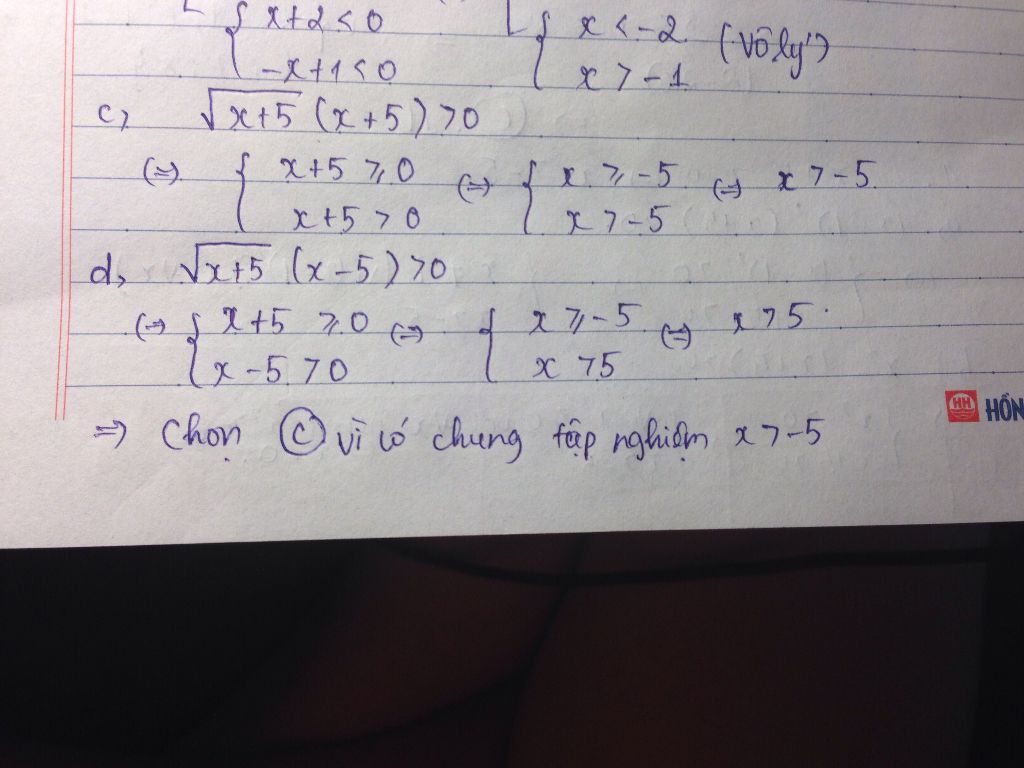 [ { x+2<0 [ { x<-2 (Vô lý)
-x+1<0 x>-1
c, √x+5 (x+5) >0
(=) { x+5 ⩾ 0 (=) { x ⩾ -5 (=) x > -5
x+5 > 0 x > -5
d, √x+5 (x-5) >0
(=) { x+5 ⩾ 0 (=) { x ⩾ -5 (=) x > 5
x-5 > 0 x > 5
HH HỒN
=> Chọn (C) vì có chung tập nghiệm x > -5